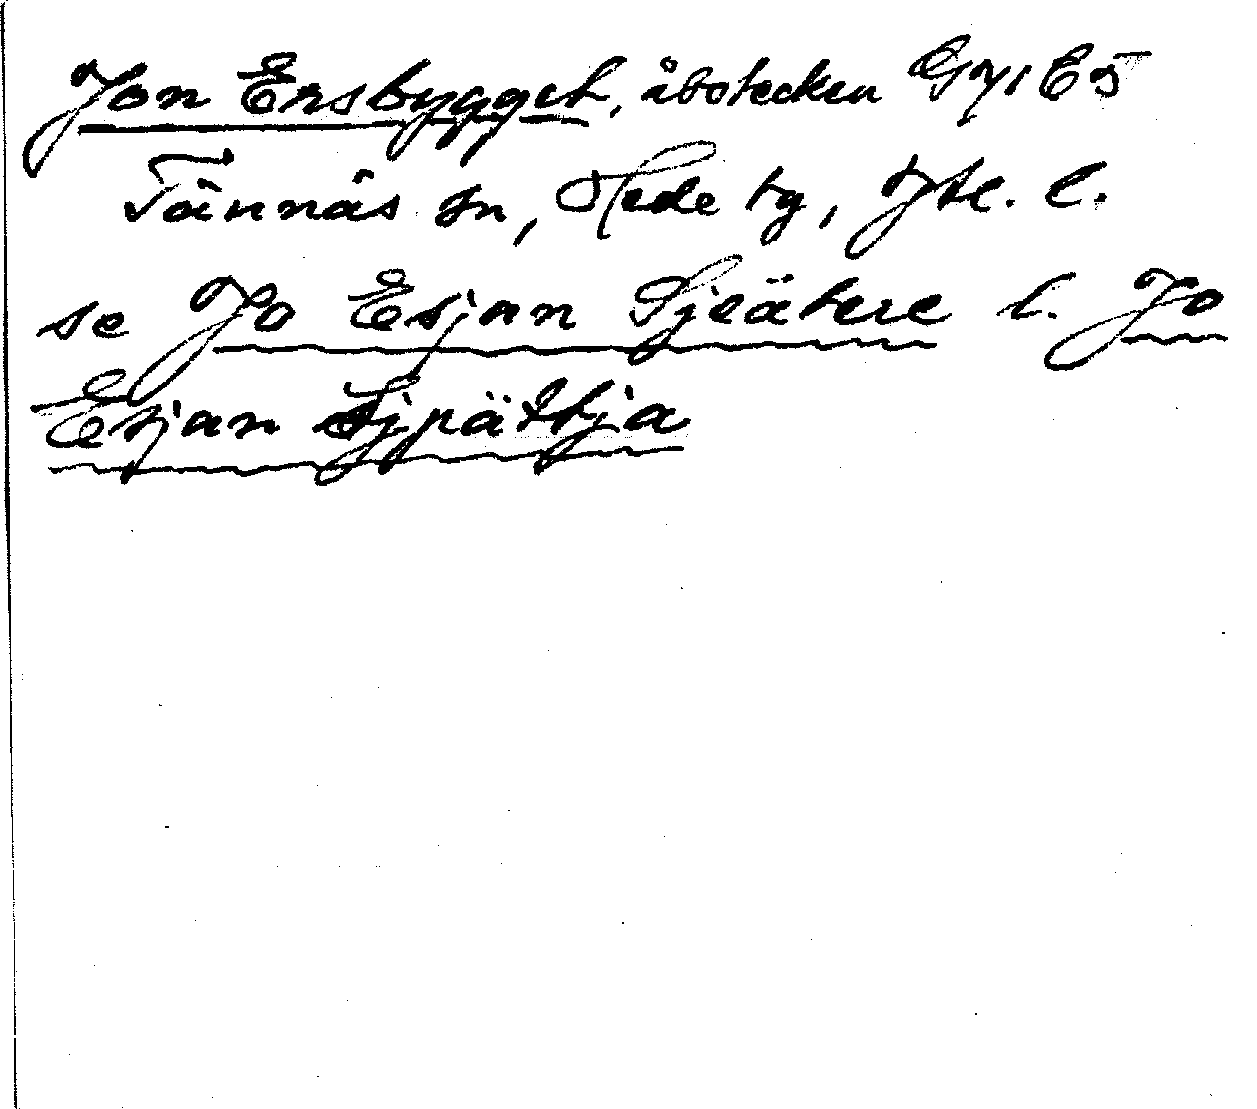 Jon Ersbygget, åbotecken G71E5
Tännäs sn, Hede tg, Jtl. l.
se Jo Ersjan Sjeätere l. Jo
Ersjan Sjpättja